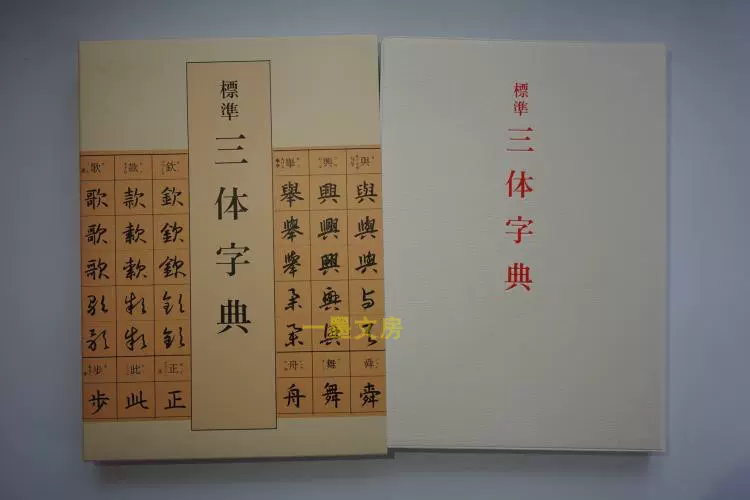 標準
三体字典
歌 款 欽
歌 款 欽
歌 款 欽
歌 款 欽
歌 款 欽
歌 款 欽
步 此 正
歩 此 正
擧 興 與
舉 興 與
舉 興 與
舉 興 與
舉 興 與
舉 興 與
舟 舞 舜
舟 舞 舜
一墨文房
標準
三体字典